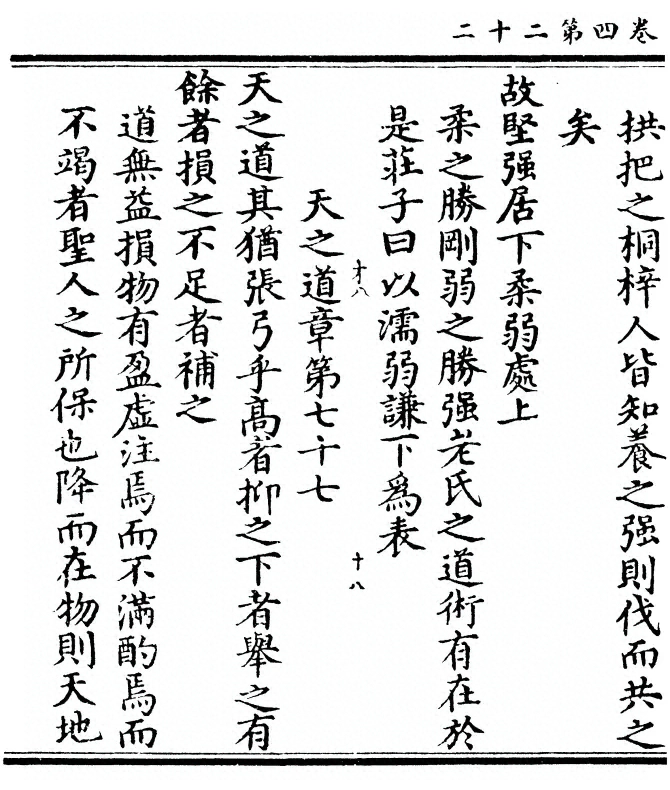 卷四第二十二
拱把之桐梓人皆知養之强則伐而共之
矣
故堅强居下柔弱處上
柔之勝剛弱之勝强老氏之道術有在於
是莊子曰以濡弱謙下爲表
才八
十八
天之道章第七十七
天之道其猶張弓乎高者抑之下者舉之有
餘者損之不足者補之
道無益損物有盈虛注焉而不滿酌焉而
不竭者聖人之所保也降而在物則天地